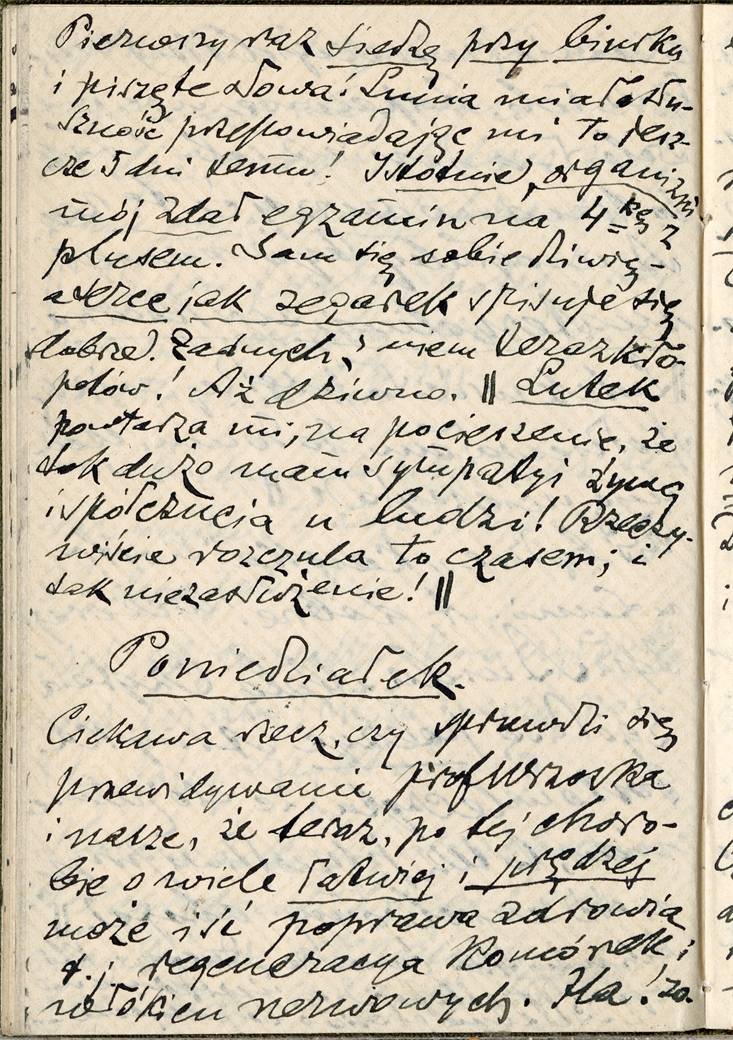 Pierwszy raz siedzę przy biurku
i piszę te słowa! Lunia miała słu-
szność przepowiadając mi to jesz-
cze 5 dni temu! Istotnie, organizm
mój zdał egzamin na 4kę z
plusem. Sam się sobie dziwię –
a serce jak zegarek spisuje się
dobrze. Żadnych, niem teraz kło-
potów! Aż dziwno. || Lutek
powtarza mi, na pocieszenie, że
tak dużo mam sympatyi żywej
i spółczucia u ludzi! Rzeczy-
wiście rozczula to czasem; i
tak niezasłużenie! ||
Poniedziałek.
Ciekawa rzecz, czy sprawdzi się
przewidywanie prof Wrzoska
i nasze, że teraz, po tej choro-
bie o wiele łatwiej i prędzej
może iść poprawa zdrowia
t.j. regeneracya komórek i
włókien nerwowych. Ha! za-